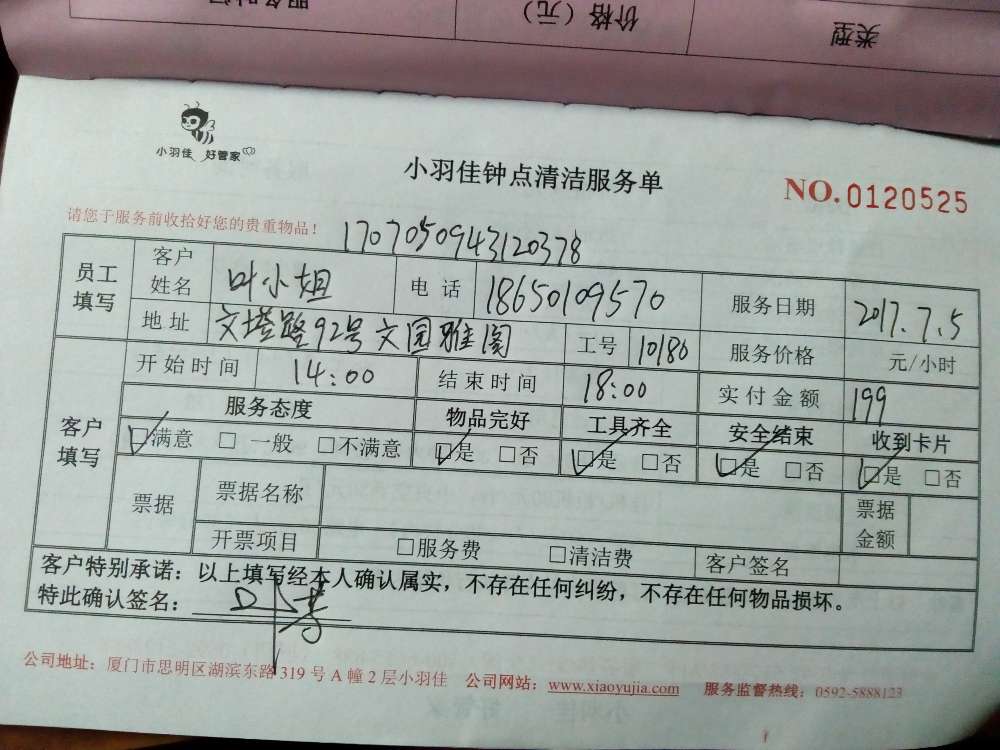 类型 价格（元） 服务时间
小羽佳 好管家
小羽佳钟点清洁服务单
NO.0120525
请您于服务前收拾好您的贵重物品！
1707050943120378
员工填写 客户姓名 叶小姐 电话 18650109570 服务日期 2017.7.5
地址 文塔路92号文园雅阁 工号 10180 服务价格 元/小时
客户填写 开始时间 14:00 结束时间 18:00 实付金额 199
服务态度 物品完好 工具齐全 安全结束 收到卡片
☑满意 □一般 □不满意 ☑是 □否 ☑是 □否 ☑是 □否 ☑是 □否
票据 票据名称 票据金额
开票项目 □服务费 □清洁费 客户签名
客户特别承诺：以上填写经本人确认属实，不存在任何纠纷，不存在任何物品损坏。
特此确认签名：
公司地址：厦门市思明区湖滨东路319号A幢2层小羽佳 公司网站：www.xiaoyujia.com 服务监督热线：0592-5888123